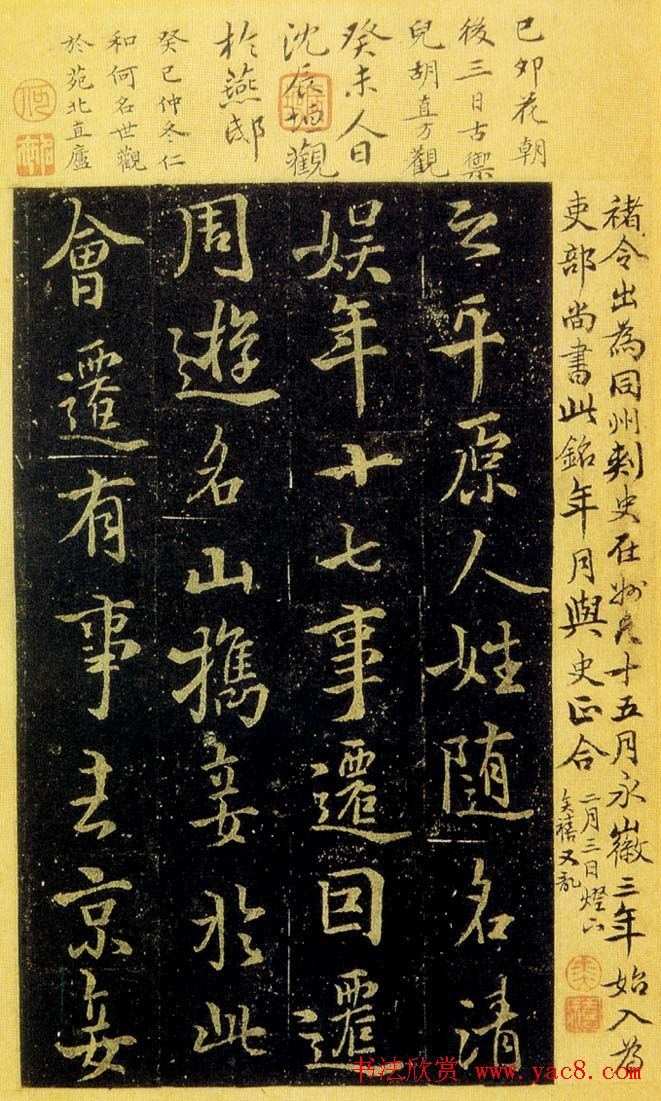 己卯花朝
後三日古禦
兒胡直方觀
癸未人日
沈辰垣觀
於燕邸
癸巳仲冬仁
和何名世觀
於苑北直廬
褚令出為同州刺史在州凡十五月永徽三年始入為
吏部尚書此銘年月與史正合
二月三日燈下
奕禧又記
之平原人姓随名清
娱年十七事遷因遷
周遊名山攜妾於此
會遷有事去京妾
书法欣赏 www.yac8.com